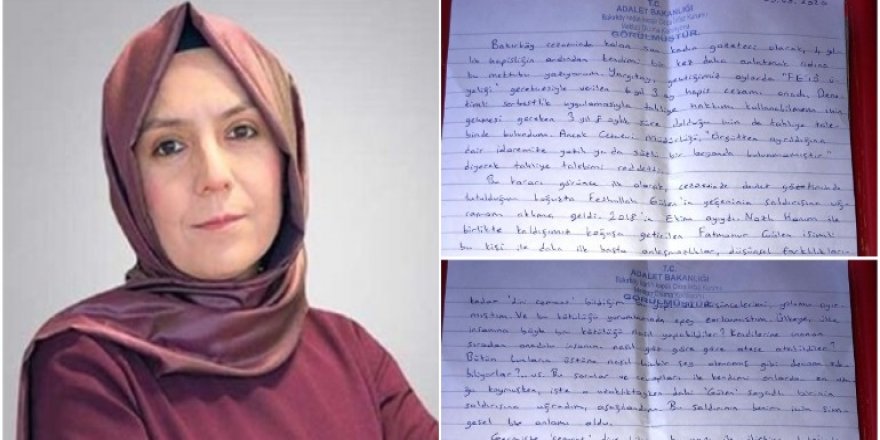 T.C.
ADALET BAKANLIĞI
Bakırköy Kadın Kapalı Ceza İnfaz Kurumu
GÖRÜLMÜŞTÜR
Bakırköy cezaevinde kalan son kadın gazeteci olarak, 4 yıl-
lık hapisliğin ardından kendimi bir kez daha anlatmak adına
bu mektubu yazıyorum. Yargıtay, geçtiğimiz aylarda "FETÖ ü-
yeliği" gerekçesiyle verilen 6 yıl 3 ay hapis cezamı onadı. Dene-
timli serbestlik uygulamasıyla tahliye hakkımı kullanabilmem için
geçmesi gereken 3 yıl 8 aylık süre dolduğu için de tahliye tale-
binde bulundum. Ancak Cezaevi Müdürlüğü, "Örgütten ayrıldığına
dair idaremize yazılı ya da sözlü bir beyanda bulunmamıştır"
diyerek tahliye talebimi reddetti.
Bu kararı görünce ilk olarak, cezaevinde devlet gözetiminde
tutulduğum koğuşta Fethullah Gülen'in yeğeninin saldırısına uğra-
aklıma geldi. 2018'in Ekim ayıydı. Nazlı Hanım ile
birlikte kaldığımız koğuşa getirilen Fatmanur Gülen isimli
bu kişi ile daha ilk başta anlaşmazlıklar, düşünsel farklılıkların
T.C.
ADALET BAKANLIĞI
Bakırköy Kadın Kapalı Ceza İnfaz Kurumu
GÖRÜLMÜŞTÜR
kadar 'din cemaati' bildiğim bu yapı düşüncelerimi, yolumu ayır-
mıştım. Ve bu kötülüğü yorumlamakta epey zorlanmıştım. Ülkeye, ülke
insanına böyle bir kötülüğü nasıl yapabildiler? Kendilerine inanan
sıradan anadolu insanını nasıl göz göre göre ateşe atabildiler?
Bütün bunların üstüne nasıl hiçbir şey olmamış gibi devam ede-
biliyorlar?.. vs. Bu sorular ve cevapları ile kendimi onlardan en uza-
ğa koymuşken, işte o uzaklıktayken dahi 'Gülen' soyadlı birinin
saldırısına uğradım, aşağılandım. Bu saldırının benim için sim-
gesel bir anlamı oldu.